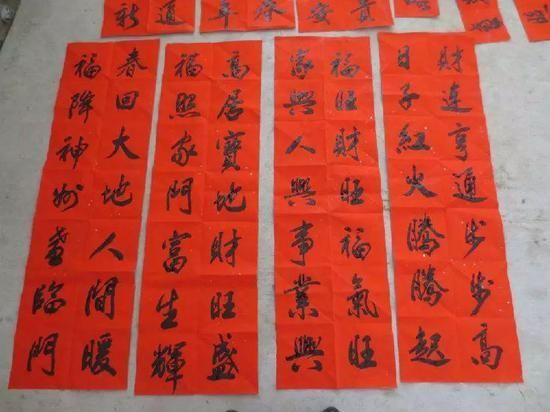 貴
安
通
財運亨通步步高
日子紅火騰騰起
福旺財旺福氣旺
家興人興事業興
高居寶地財旺盛
福照家門富生輝
春回大地人間暖
福降神州喜臨門